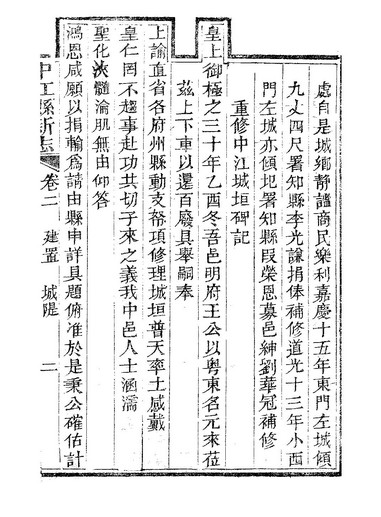 處自是城鄉靜謐商民樂利嘉慶十五年東門左城傾
九丈四尺署知縣李光謙捐俸補修道光十三年小西
門左城亦傾圮署知縣段榮恩募邑紳劉華冠補修
重修中江城垣碑記
皇上御極之三十年乙酉冬吾邑明府王公以粵東名元來莅
茲上下車以還百廢具舉嗣奉
上諭直省各府州縣動支帑項修理城垣普天率土咸戴
皇仁罔不趨事赴功共切子來之義我中邑人士涵濡
聖化浹髓淪肌無由仰答
鴻恩咸願以捐輸爲請由縣申詳具題俯准於是秉公確估計
中江縣新志
卷二 建置 城隄 二